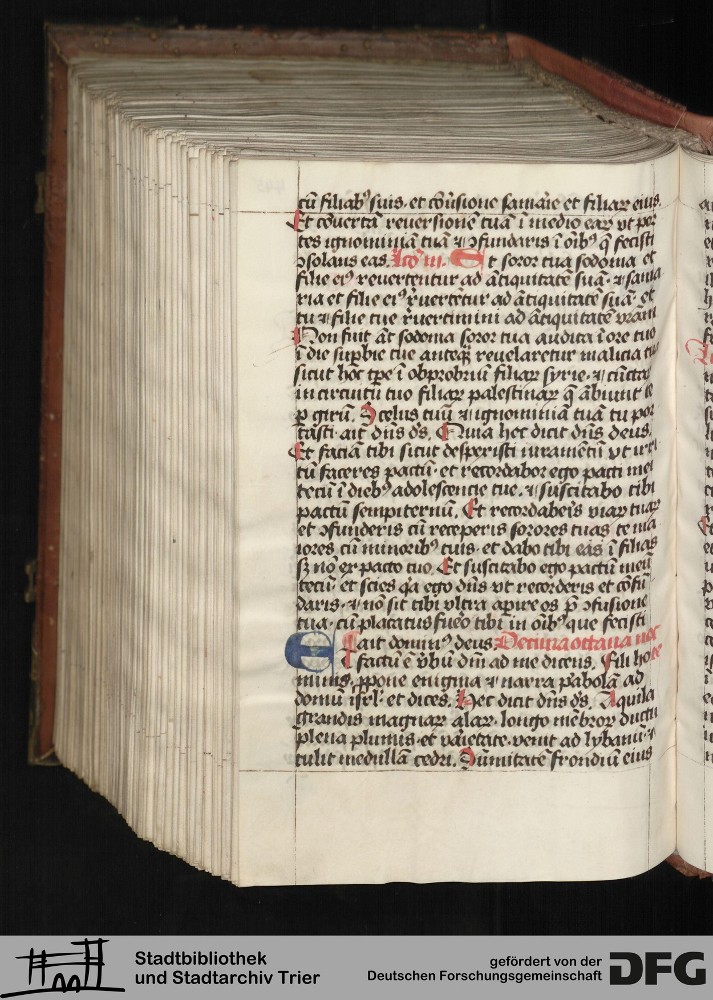 cū filiabꝰ suis· et cōu̇sione samaı̇e et filiaꝝ eius·
Et cōvertā reuersionē tuā ī medio eaꝝ vt por
tes ignominiā tuā ⁊ ↄfundaris ī oı̄bꝰ q̄ fecisti
ↄsolans eas. Et soror tua sodoma et
filie eiꝰ reuertentur ad ātiquitatē suā· ⁊ sama
ria et filie eiꝰ r̄uertētur ad ātiquitatē suā· et
tu ⁊ filie tue r̄uertimini ad ātiquitatē vr̄am
Non fuit āt sodoma soror tua audita ī ore tuo
ī die suꝑbie tue anteꝗ̄ reuelaretur malicia tua
sicut hoc tꝑe ī obprobriū filiaꝝ syrie· ⁊ cūctaꝝ
in circuitu tuo filiaꝝ palestinaꝝ q̄ ābiunt te
ꝑ girū. Scelus tuū ⁊ ignominiā tuā tu por
tasti· ait dn̄s ds̄. Quia hec dicit dn̄s deus.
Et faciā tibi sicut despexisti iuramētū vt irri
tū faceres pactū· et recordabor ego pacti mei
tecū ī diebꝰ adolescencie tue· ⁊ suscitabo tibi
pactū sempiternū. Et recordaberis viaꝝ tuaꝝ
et ↄfunderis cū receperis sorores tuas te ma
iores cū minoribꝰ tuis· et dabo tibi eas ī filias
sꝫ nō ex pacto tuo. Et suscitabo ego pactū meū
tecū· et scies qa ego dn̄s vt recorderis et cōfū
daris· ⁊ nō sit tibi vltra aperire os p̄ ↄfusione
tua· cū placatus fuero tibi in oı̄bꝰ que fecisti
Eait dominꝰ deus Decima octaua
t factū ē v̇bū dn̄i ad me dicens. Fili ho
minis· ꝓpone enigma ⁊ narra ꝑabolā ad
domū isrl̄· et dices. Hec dicit dn̄s ds̄. Aquila
grandis magnaꝝ alaꝝ· longo mēbroꝝ ductu
plena plumis· et varietate· venit ad lybanū· ⁊
tulit medullā cedri. Sūmitatē frondiū eius
Stadtbibliothek
und Stadtarchiv Trier
gefördert von der
Deutschen Forschungsgemeinschaft
DFG